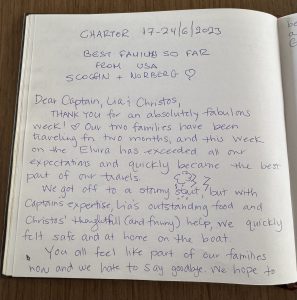 CHARTER 17-24/6/2023
BEST FAMILIES SO FAR
FROM USA
SCOGGIN + NORBERG ♡
Dear Captain, Lia & Christos,
THANK YOU for an absolutely fabulous
week! ♡ Our two families have been
traveling for two months, and this week
on the Elvira has exceeded all our
expectations and quickly became the best
part of our travels.
We got off to a stormy start, but with
Captains expertise, Lia's outstanding food and
Christos' thoughtful (and funny) help, we quickly
felt safe and at home on the boat.
You all feel like part of our families
now and we hate to say goodbye. We hope to